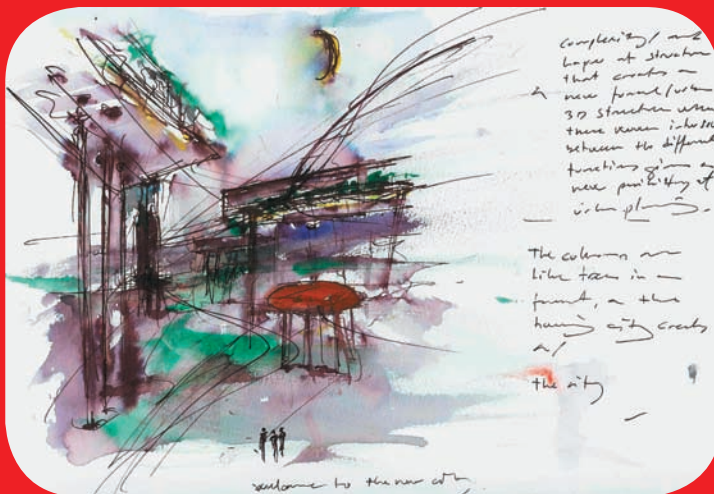 complexity / and
layer of structure
that creates a
new formal / urban
3D structure when
there
between the different
functions gives a
new possibility of
urban planning.
The columns are
like trees in a
forest, a the
city creates
a /
the city
welcome to the new city